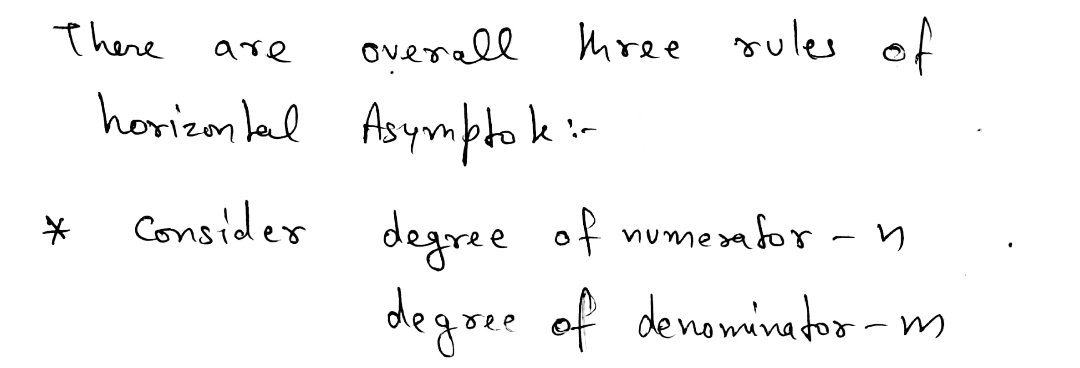 There are overall three rules of
horizontal Asymptote :-
* Consider degree of numerator - n
degree of denominator - m